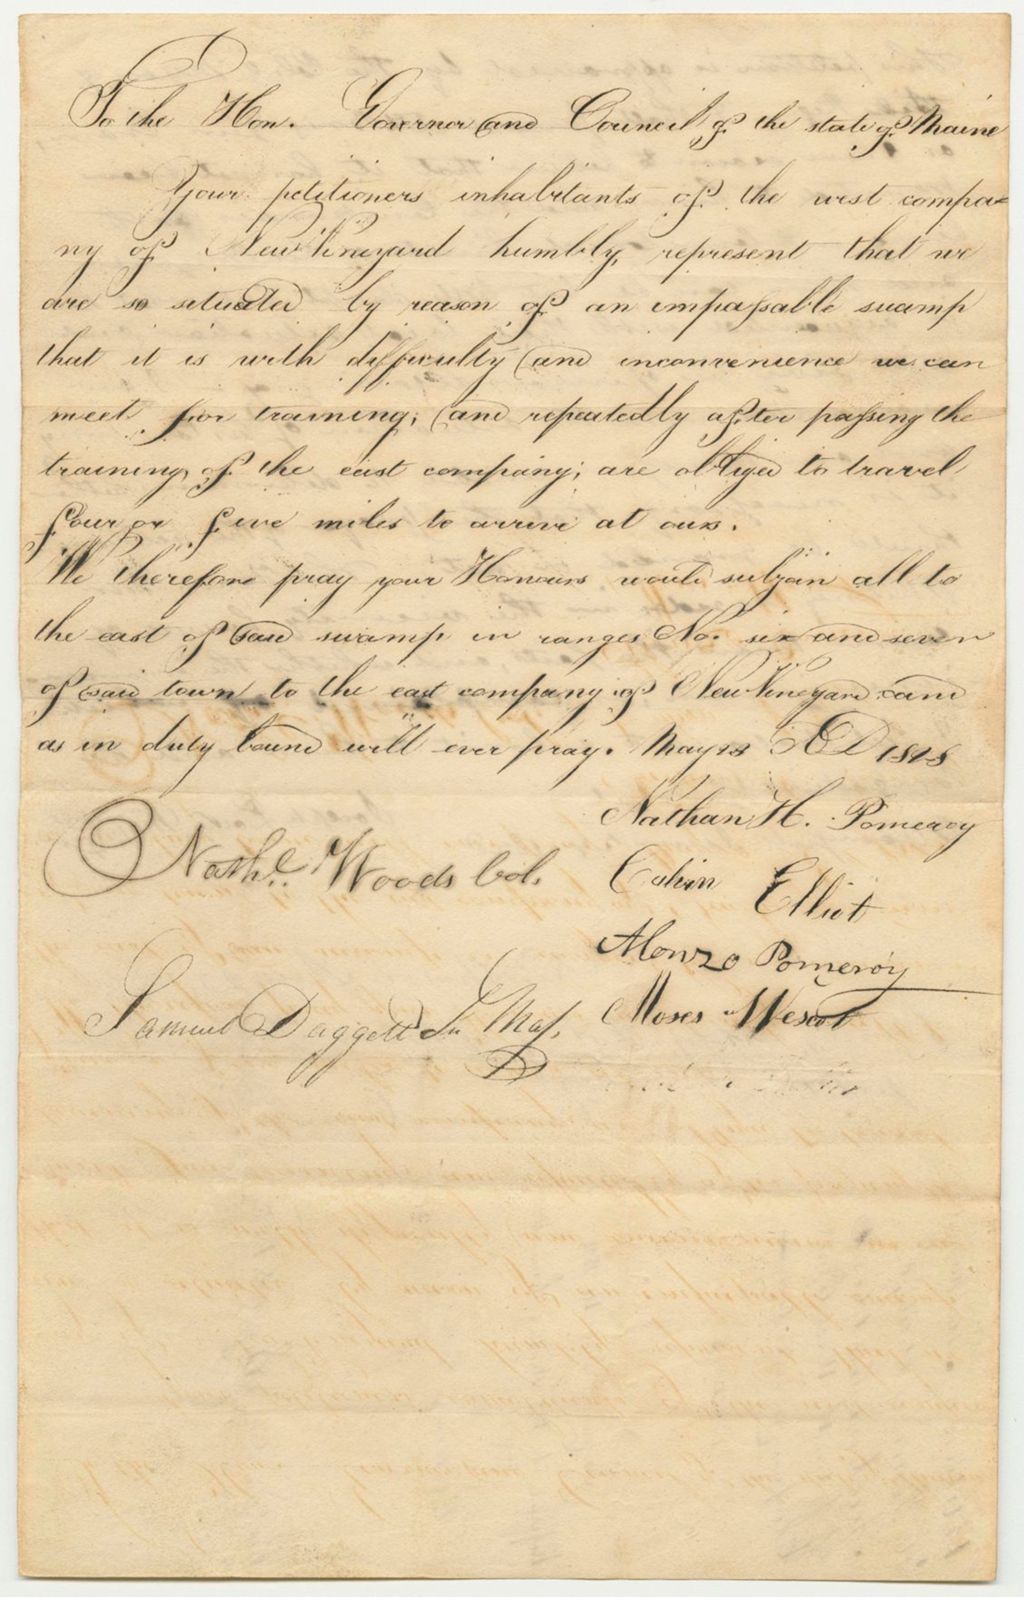 To the Hon. Governor and Council of the state of Maine
Your petitioners inhabitants of the west compa=
ny of New Vineyard humbly represent that we
are so situated by reason of an impassable swamp
that it is with difficulty and inconvenience we can
meet for training; and repeatedly after passing the
training of the east company; are obliged to travel
four or five miles to arrive at ours.
We therefore pray your Honours would subjoin all to
the east of said swamp in ranges No. six and seven
of said town to the east company of New Vineyard and
as in duty bound will ever pray. May 28 AD 1828
Nathan H. Pomeroy
Nathl. Woods Col. Calvin Elliot
Alonzo Pomeroy
Samuel Daggett Jn Maj. Moses Wescot